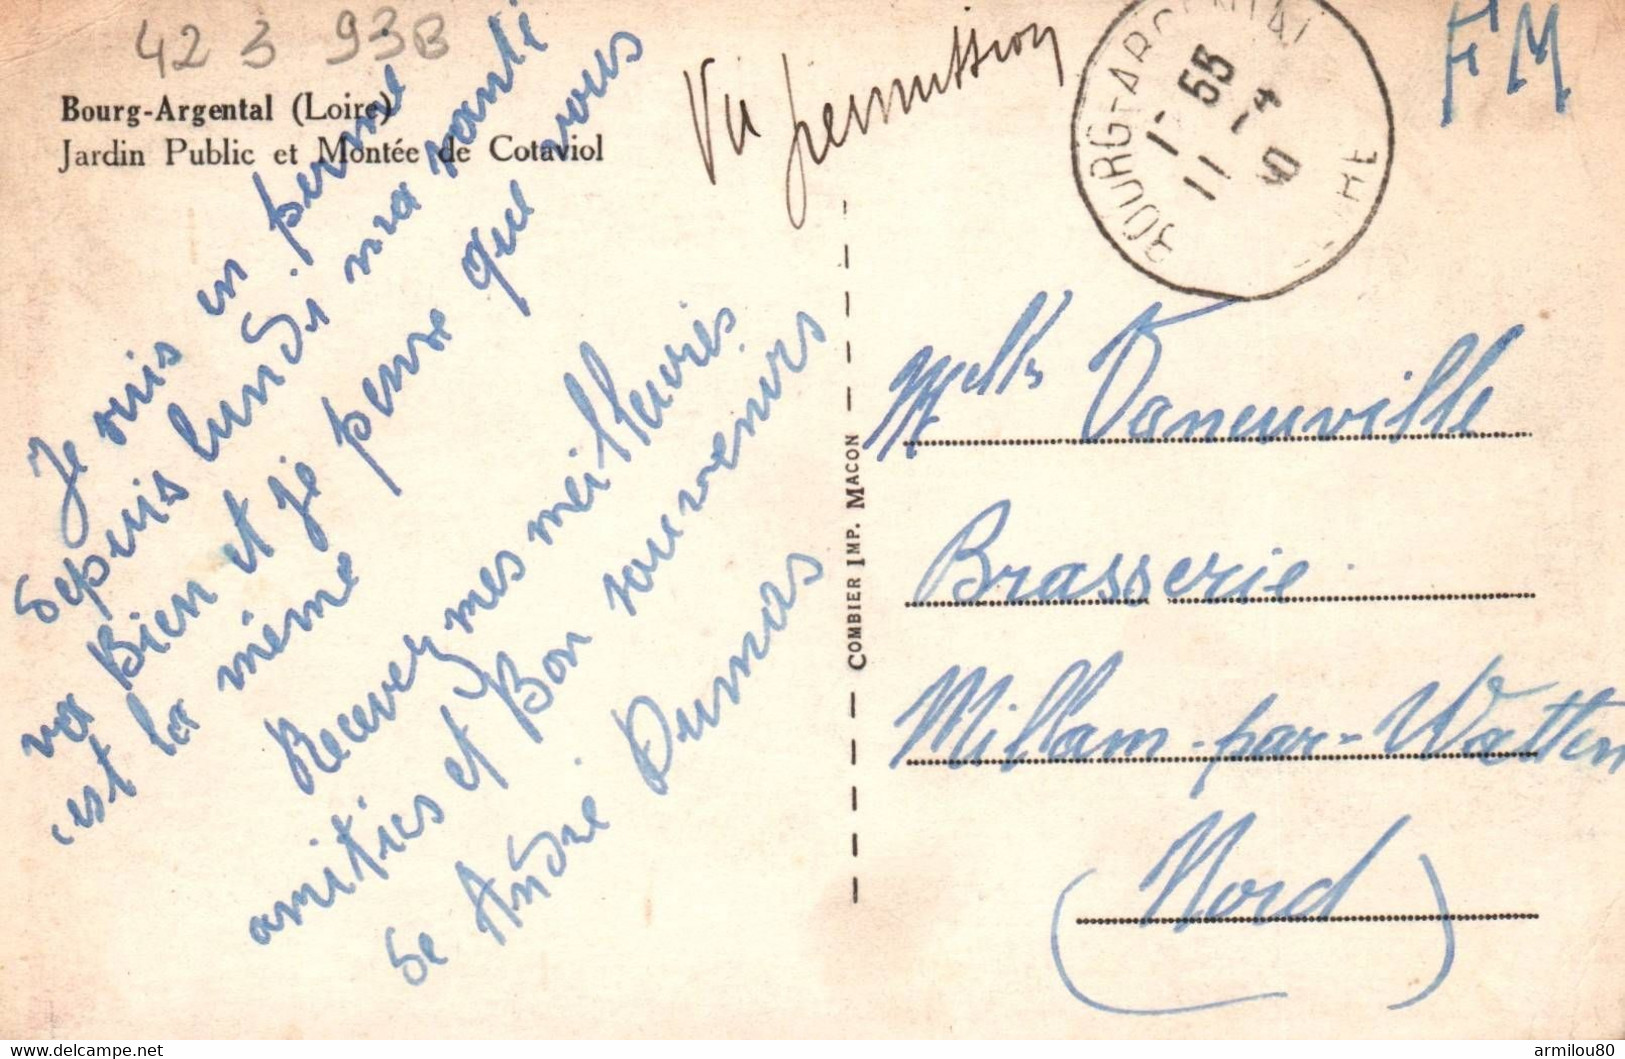 42 3 93B
Bourg-Argental (Loire)
Jardin Public et Montée de Cotaviol
Je suis en perme
depuis lundi ma santé
va Bien et je pense que vous
est la même
Recevez mes meilleures
amitiés et Bon souvenirs
de André Dumas
Vu permission
BOURG-ARGENTAL
LOIRE
55
11-4
11 40
FM
COMBIER IMP. MACON
Melles Vaneuville
Brasserie
Millam-par-Watten
(Nord)
armilou80